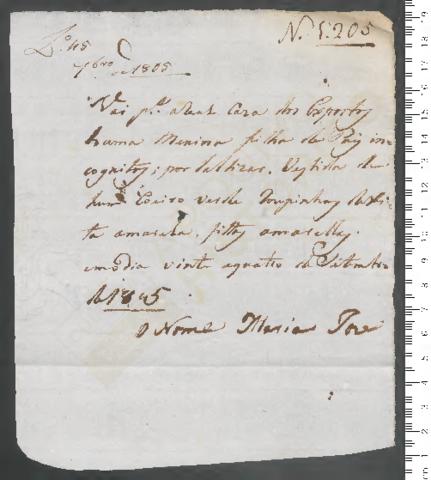 N. 1:205
L.º 45
7bro de 1805
Vai p.ª a Real Caza dos Expostos
huma Menina filha de Pais in
cognitos; por batizar. Vestida de
hum Coeiro verde Roupinhas de xi
ta amarela. fittas amarellas.
em o dia vinte aquatro de Setembro
de 1805
O Nome Maria Joze